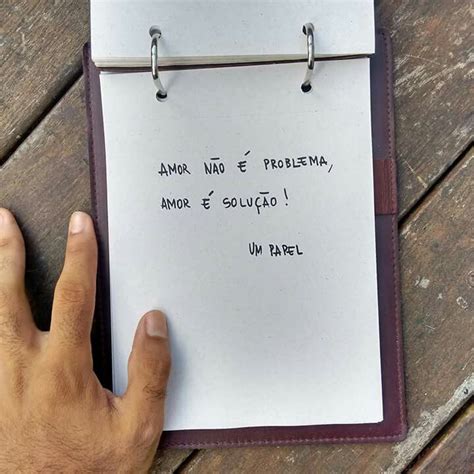 AMOR NÃO É PROBLEMA,
AMOR É SOLUÇÃO!
UM PAPEL